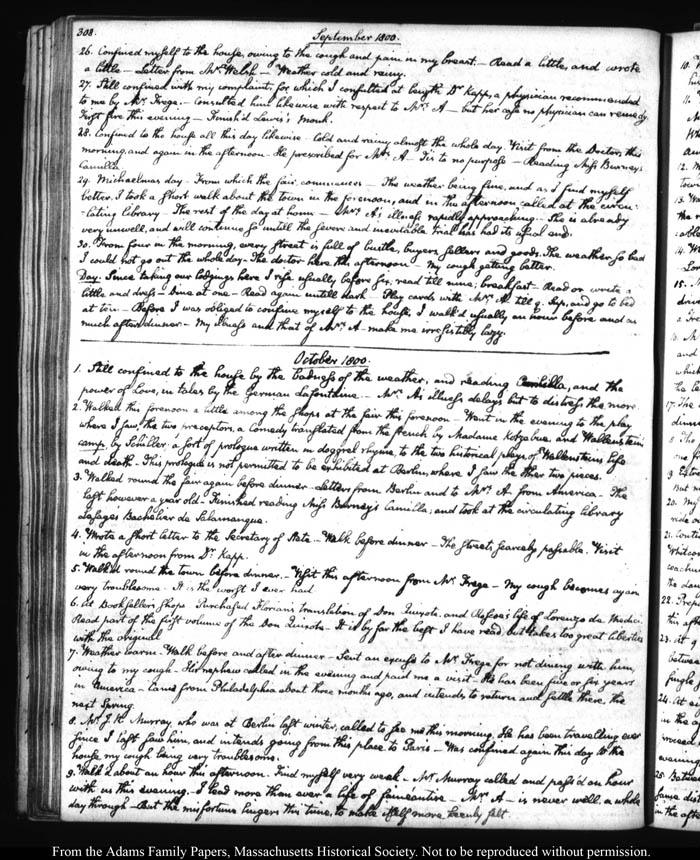 308.
September 1800.
26. Confined myself to the house, owing to the cough and pain in my breast. — Read a little, and wrote
a little — Letter from Mr. Welsh — Weather cold and rainy.
27. Still confined with my complaint, for which I consulted at length Dr. Kapp, a physician recommended
to me by Mr. Frege. — Consulted him likewise with respect to Mrs. A — but her case no physician can remedy.
First fire this evening — Finish'd Lewis's Monk.
28. Confined to the house all this day likewise. Cold and rainy almost the whole day. Visit from the Doctor, this
morning, and again in the afternoon. He prescribed for Mrs. A — Tis to no purpose — Reading Miss Burney's
Camilla.
29. Michaelmas day. From which the fair commences — The weather being fine, and as I find myself
better, I took a short walk about the town in the forenoon, and in the afternoon, called at the circu-
lating library — The rest of the day at home — Mrs. A's illness rapidly approaching. She is already
very unwell, and will continue so until the severe and inevitable trial has had its end.
30. From four in the morning, every street is full of bustle, buyers, sellers and goods. The weather so bad
I could not go out the whole day. The doctor here this afternoon — My cough getting better.
Day. Since taking our lodgings here I rise usually before six, read till nine; breakfast — Read or write a
little and dress — Dine at one — Read again until dark — Play cards with Mrs. A till 9. Sup, and go to bed
at ten — Before I was obliged to confine myself to the house, I walk'd usually an hour before and as
much after dinner — My illness and that of Mrs. A make me irresistibly lazy.
October 1800.
1. Still confined to the house by the badness of the weather, and reading Camilla, and the
power of Love, in tales by the German Lafontaine. — Mrs. A's illness delays but to distress the more.
2. Walked this forenoon a little among the shops at the fair this forenoon — Went in the evening to the play
where I saw, the two preceptors, a comedy translated from the french by Madame Kotzebue, and Wallensteins
camp, by Schiller: a sort of prologue written in doggrel rhyme, to the two historical plays of Wallensteins life
and death. This prologue is not permitted to be exhibited at Berlin, where I saw the other two pieces.
3. Walked round the fair again before dinner — Letters from Berlin and to Mrs. A. from America. The
last however a year old. Finished reading Miss Burney's Camilla, and took at the circulating library
Lesage's Bachelier de Salamanque.
4. Wrote a short letter to the Secretary of State — Walk before dinner — The streets scarcely passable. Visit
in the afternoon from Dr. Kapp.
5. Walked round the town before dinner. — Visit this afternoon from Mr. Frege — My cough becomes again
very troublesome. It is the worst I ever had.
6. At Booksellers Shops. Purchased Florian's translation of Don Quixote, and Roscoe's life of Lorenzo de Medici.
Read part of the first volume of the Don Quixote — It is by far the best I have read, but takes too great liberties
with the original.
7. Weather warm. Walk before and after dinner — Sent an excuse to Mr. Frege for not dining with him,
owing to my cough — His nephew called in the evening and paid me a visit — He has been five or six years
in America — Came from Philadelphia about three months ago, and intends to return and settle there, the
next Spring.
8. Mr. J. R. Murray, who was at Berlin last winter, called to see me this morning. He has been travelling ever
since I last saw him, and intends going from this place to Paris — Was confined again this day to the
house, my cough being very troublesome.
9. Walk'd about an hour this afternoon. Find myself very weak — Mr. Murray called and pass'd an hour
with us this evening. — I lead more than ever a life of fainéantise. Mrs. A — is never well a whole
day through — But the misfortune lingers this time, to make itself more keenly felt.
From the Adams Family Papers, Massachusetts Historical Society. Not to be reproduced without permission.